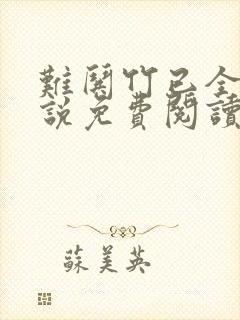 難閿竹已全
說免費閱讀
蘇美英